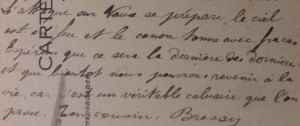 nous se prépare, le ciel
est en feu et le canon tonne avec fracas
que ce sera la dernière des dernières
et que bientôt nous pourrons revenir à la
vie, car c'est un véritable calvaire que l'on
passe. Ton cousin, Brossy
CARTE